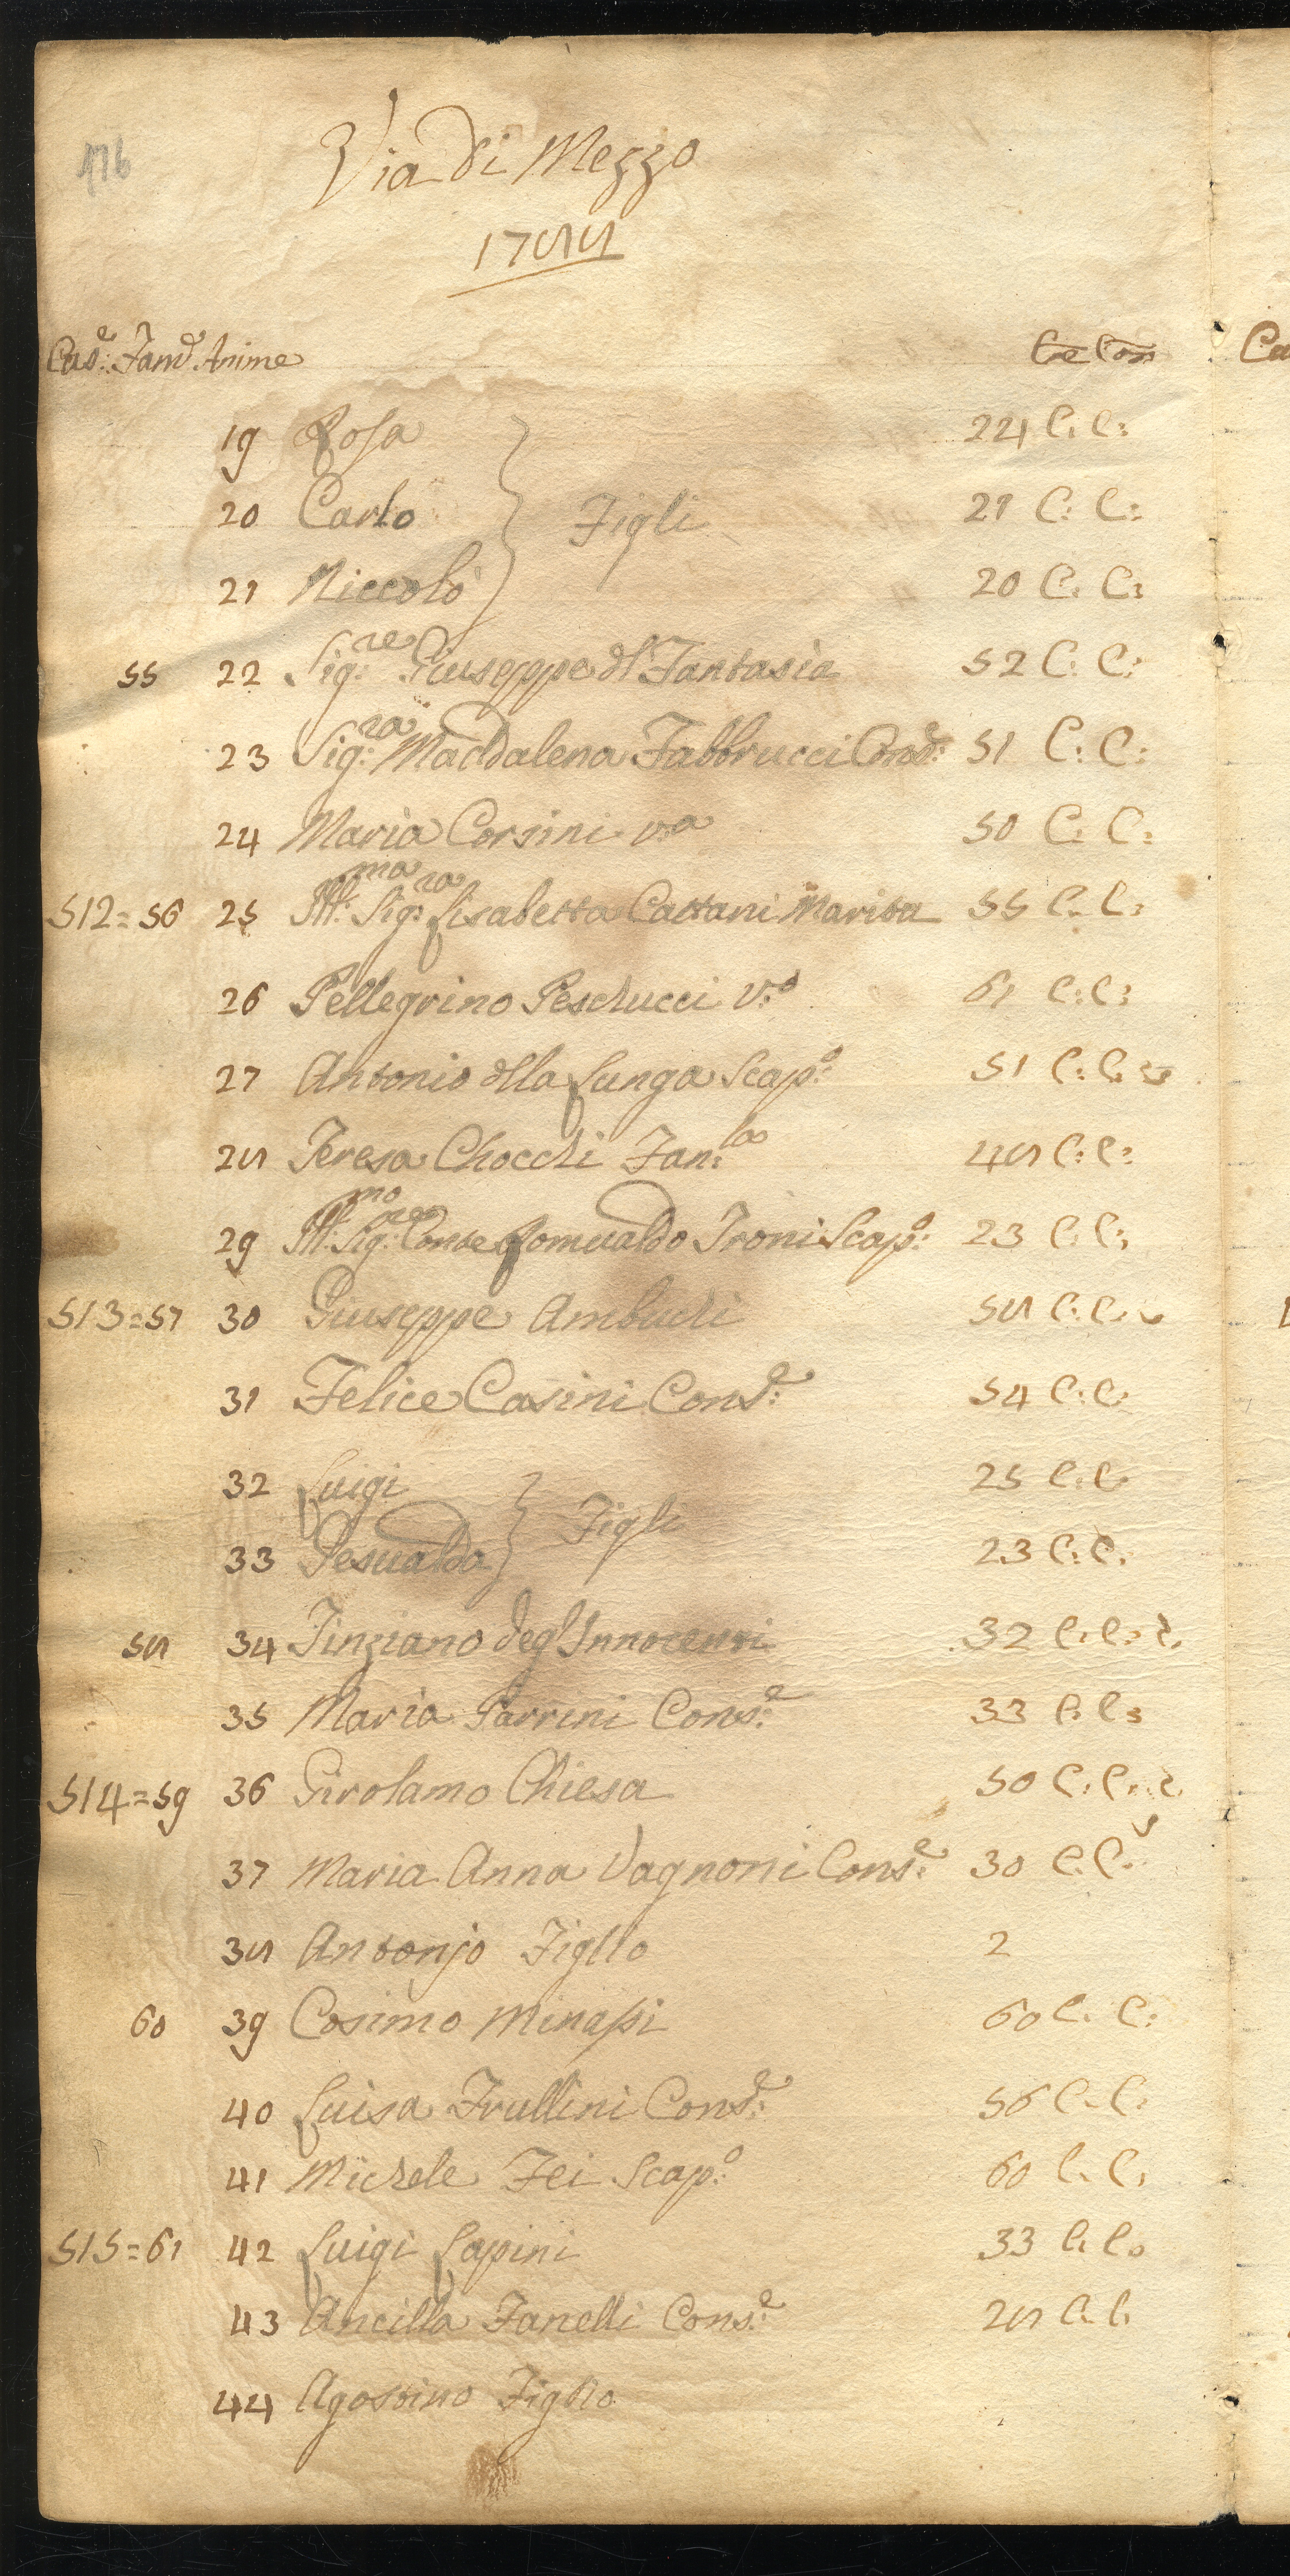 176
Via di Mezzo
1788
Cas.e Fam.e Anime Età Com
19 Rosa 24 C: C:
20 Carlo Figli 21 C: C:
21 Niccolò 20 C: C:
55 22 Sig:re Giuseppe del Fantasia 52 C: C:
23 Sig:ra Maddalena Fabbrucci Cons:e 51 C: C:
24 Maria Corsini v:a 50 C: C:
512=56 25 Ill:ma Sig:ra Lisabetta Cattani Marita 55 C: C:
26 Pellegrino Peschucci v:o 61 C: C:
27 Antonio della Lunga Scap:o 51 C: C:
28 Teresa Chocchi Fan:la 48 C: C:
29 Ill:mo Sig:re Conte Romualdo Troni Scap:o 23 C: C:
513=57 30 Giuseppe Ambuchi 58 C: C:
31 Felice Casini Cons:e 54 C: C:
32 Luigi Figli 25 C: C:
33 Gesualda 23 C: C:
58 34 Tinziano degl'Innocenti 32 C: C:
35 Maria Parrini Cons:e 33 C: C:
514=59 36 Girolamo Chiesa 50 C: C:
37 Maria Anna Vagnoni Cons:e 30 C: C:
38 Antonjo Figlio 2
60 39 Cosimo Minassi 60 C: C:
40 Luisa Trullini Cons:e 56 C: C:
41 Michele Fei Scap:o 60 C: C:
515=61 42 Luigi Lapini 33 C: C:
43 Ancilla Fanelli Cons:e 28 C: C:
44 Agostino Figlio